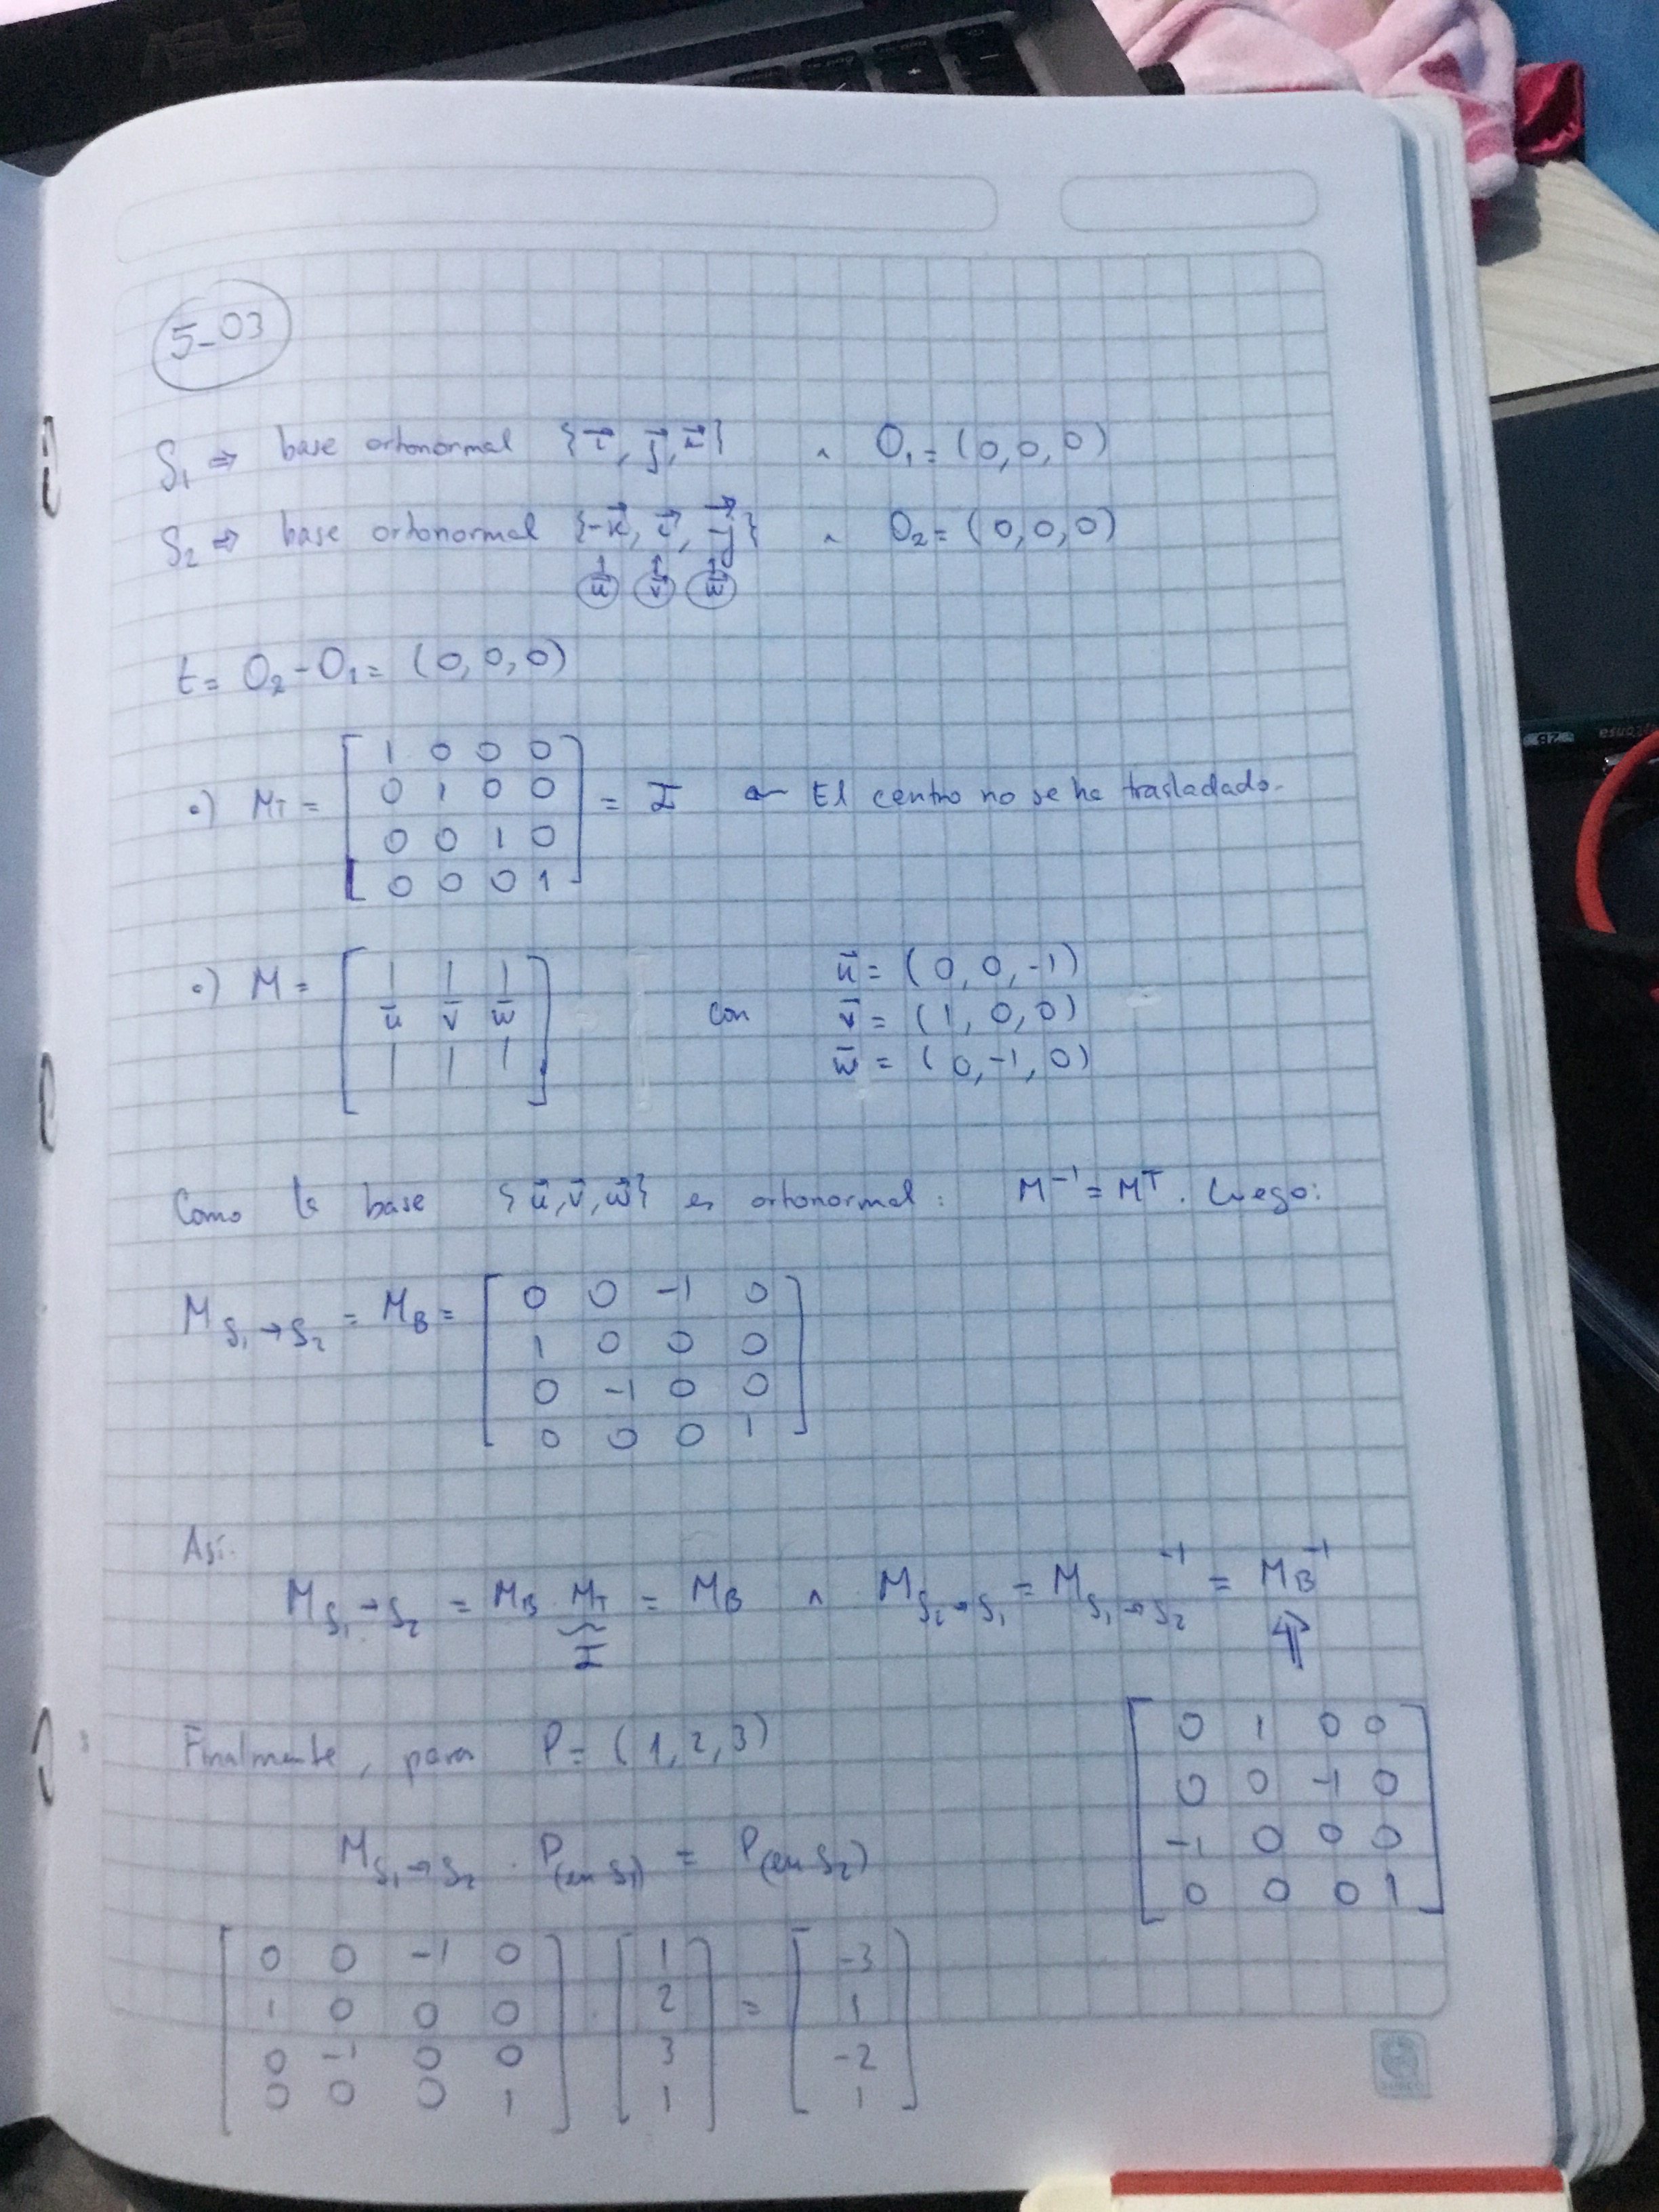 5_03
S₁ ⇒ base ortonormal {i⃗, j⃗, k⃗} ∧ O₁ = (0,0,0)
S₂ ⇒ base ortonormal {-k⃗, i⃗, -j⃗} ∧ O₂ = (0,0,0)
u⃗ v⃗ w⃗
t = O₂ - O₁ = (0,0,0)
•) M_T = [ 1 0 0 0
0 1 0 0
0 0 1 0
0 0 0 1 ] = I ← El centro no se ha trasladado.
•) M = [ | | |
ū v̄ w̄
| | | ] con ū = (0,0,-1)
v̄ = (1,0,0)
w̄ = (0,-1,0)
Como la base {u⃗,v⃗,w⃗} es ortonormal: M⁻¹ = Mᵀ. Luego:
M_S₁→S₂ = M_B = [ 0 0 -1 0
1 0 0 0
0 -1 0 0
0 0 0 1 ]
Así.
M_S₁→S₂ = M_B M_T = M_B ∧ M_S₂→S₁ = M_S₁→S₂⁻¹ = M_B⁻¹
I ⇑
Finalmente, para P = (1,2,3)
[ 0 1 0 0
0 0 -1 0
-1 0 0 0
0 0 0 1 ]
M_S₁→S₂ . P(en S₁) = P(en S₂)
[ 0 0 -1 0 ] . [ 1 ] = [ -3 ]
[ 1 0 0 0 ] [ 2 ] [ 1 ]
[ 0 -1 0 0 ] [ 3 ] [ -2 ]
[ 0 0 0 1 ] [ 1 ] [ 1 ]